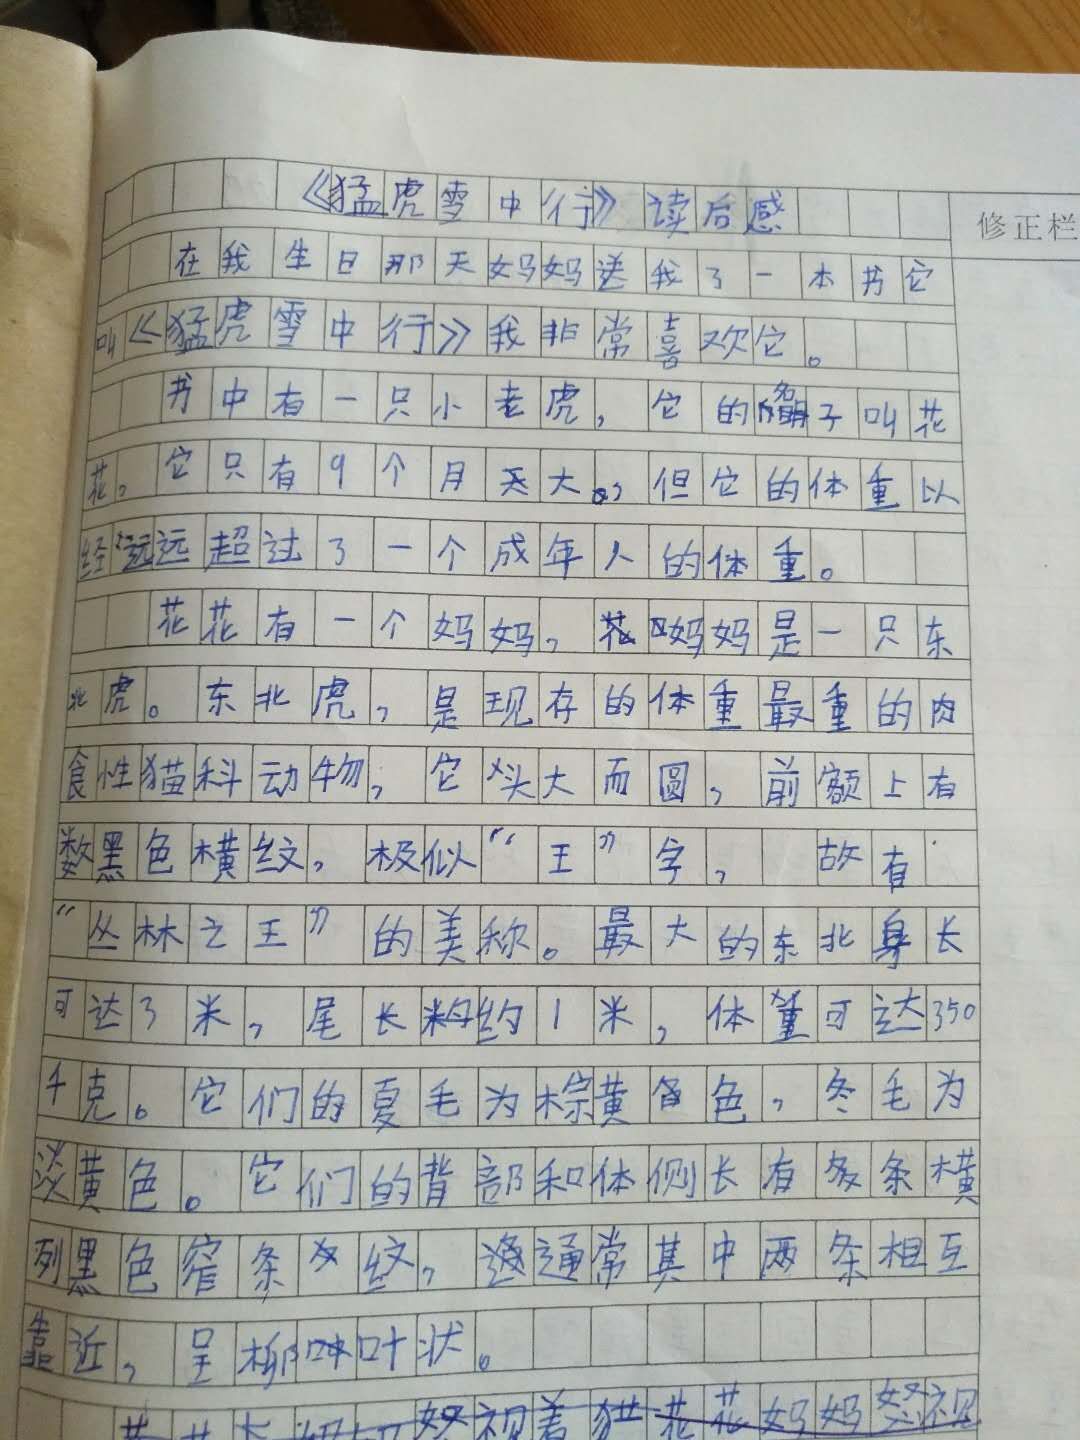 《猛虎雪中行》读后感
修正栏
在我生日那天妈妈送我了一本书它
叫《猛虎雪中行》我非常喜欢它。
书中有一只小老虎,它的名子叫花
花,它只有9个月大,但它的体重以
经远远超过了一个成年人的体重。
花花有一个妈妈,妈妈是一只东
北虎。东北虎,是现存的体重最重的肉
食性猫科动物,它头大而圆,前额上有
数黑色横纹,极似“王”字,故有
“丛林之王”的美称。最大的东北身长
可达3米,尾长约1米,体重可达350
千克。它们的夏毛为棕黄色,冬毛为
淡黄色。它们的背部和体侧长有多条横
列黑色窄条纹,通常其中两条相互
靠近,呈柳叶状。
怒视着猫花花妈妈怒视